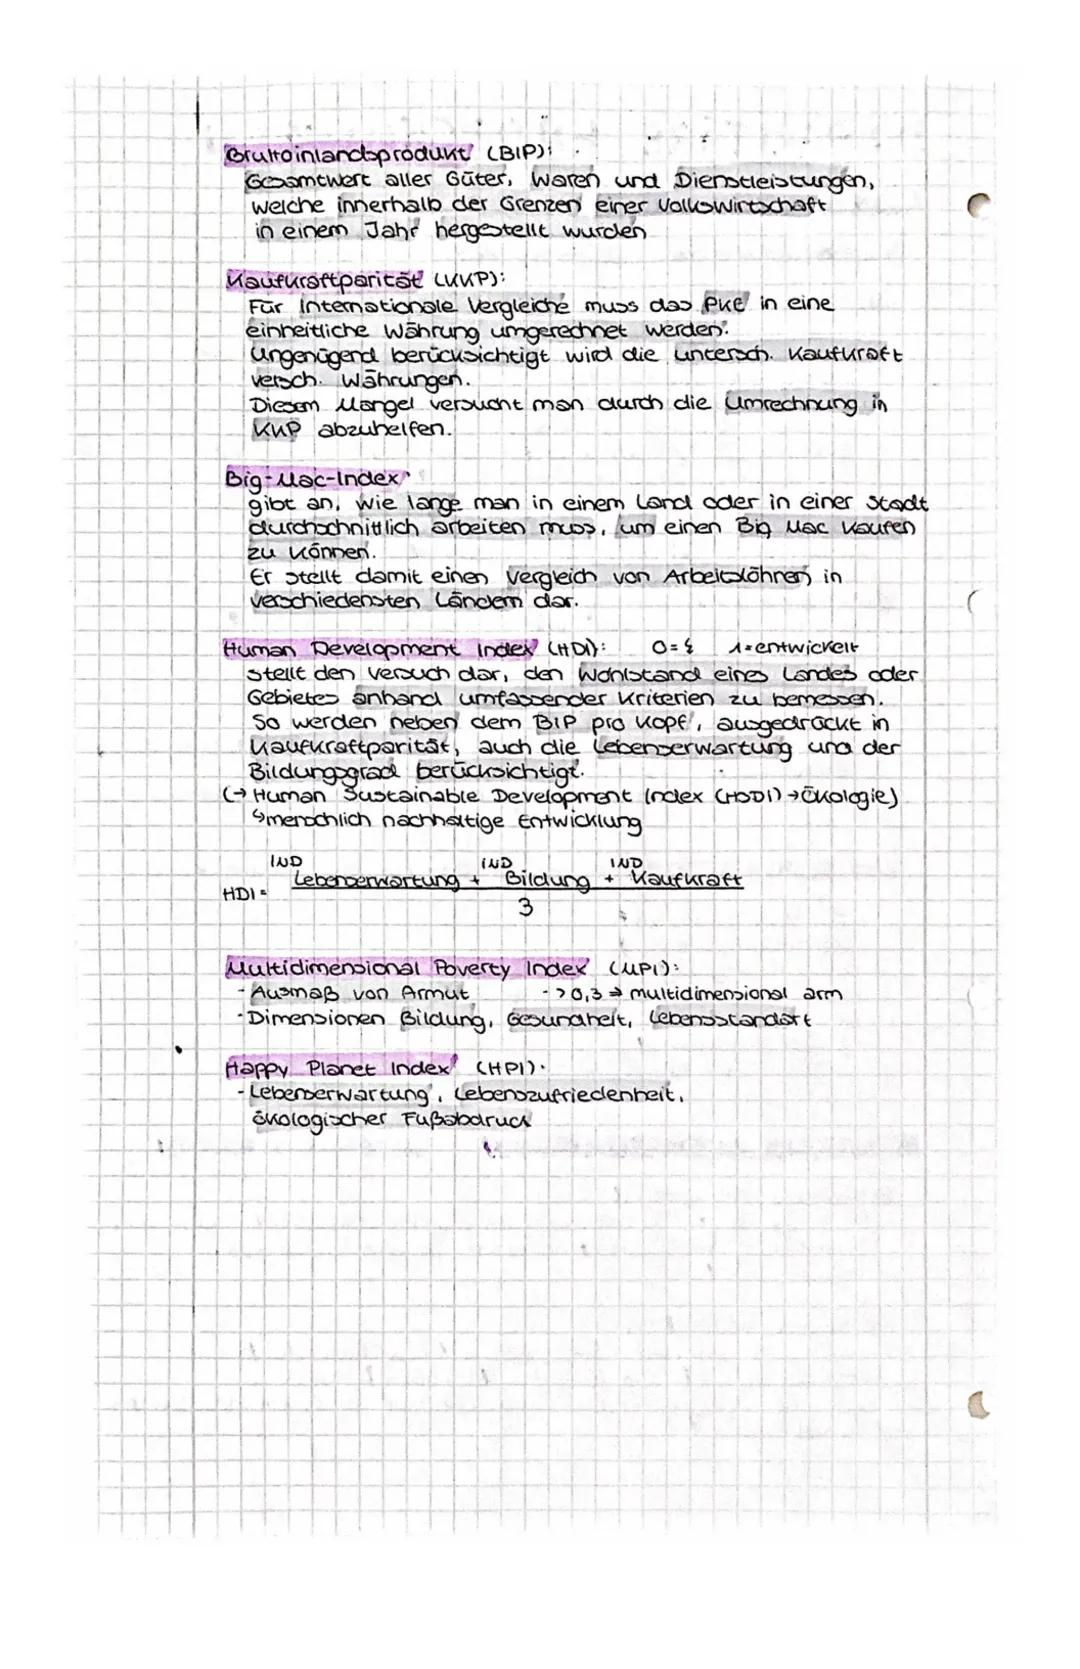 Bruttoinlandsprodukt (BIP):
Gesamtwert aller Güter, Waren und Dienstleistungen,
welche innerhalb der Grenzen einer Volkswirtschaft
in einem Jahr hergestellt wurden
Kaufkraftparität (KKP):
Für Internationale Vergleiche muss das PKE in eine
einheitliche Währung umgerechnet werden.
Ungenügend berücksichtigt wird die untersch. Kaufkraft
versch. Währungen.
Diesem Mangel versucht man durch die Umrechnung in
KKP abzuhelfen.
Big-Mac-Index
gibt an, wie lange man in einem Land oder in einer Stadt
durchschnittlich arbeiten muss, um einen Big Mac kaufen
zu können.
Er stellt damit einen Vergleich von Arbeitslöhnen in
verschiedensten Ländern dar.
Human Development Index (HDI): 0= 1=entwickelt
stellt den Versuch dar, den Wohlstand eines Landes oder
Gebietes anhand umfassender Kriterien zu bemessen.
So werden neben dem BIP pro Kopf, ausgedrückt in
Kaufkraftparität, auch die Lebenserwartung und der
Bildungsgrad berücksichtigt.
(→ Human Sustainable Development Index (HSDI) → Ökologie)
↳ menschlich nachhaltige Entwicklung
IND IND IND
Lebenserwartung + Bildung + Kaufkraft
HDI =
3
Multidimensional Poverty Index (MPI):
- Ausmaß von Armut - > 0,3 ⇒ multidimensional arm
- Dimensionen Bildung, Gesundheit, Lebensstandart
Happy Planet Index (HPI):
- Lebenserwartung, Lebenszufriedenheit,
ökologischer Fußabdruck